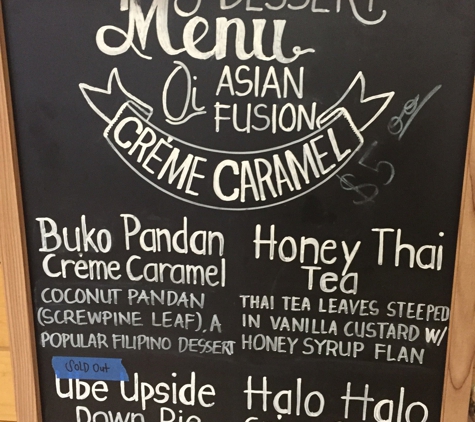 DESSERT
Menu
Oi ASIAN
FUSION
CRÈME CARAMEL
$5.00
Buko Pandan
Crème Caramel
COCONUT PANDAN
(SCREWPINE LEAF), A
POPULAR FILIPINO DESSERT
Honey Thai
Tea
THAI TEA LEAVES STEEPED
IN VANILLA CUSTARD W/
HONEY SYRUP FLAN
SOLD OUT
Ube Upside
Down Pie
Halo Halo